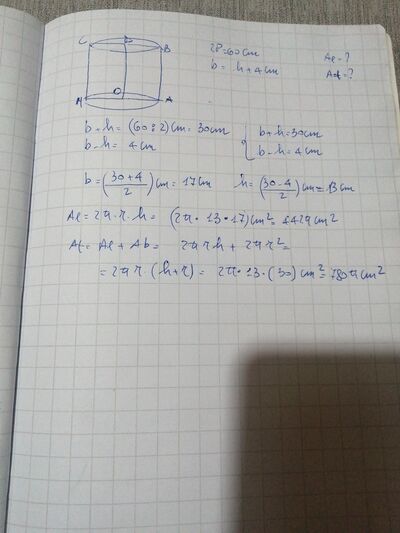 C D B
2P=60cm Al=?
b = h+4cm At=?
O
A
b+h = (60:2)cm = 30cm { b+h=30cm
b-h = 4cm b-h = 4cm
b=(30+4/2)cm = 17cm h=(30-4/2)cm=13cm
Al = 2π·r·h = (2π·13·17)cm²=442πcm²
At= Al + Ab = 2πrh + 2πr²=
=2πr·(h+r) = 2π·13·(30)cm²=780πcm²